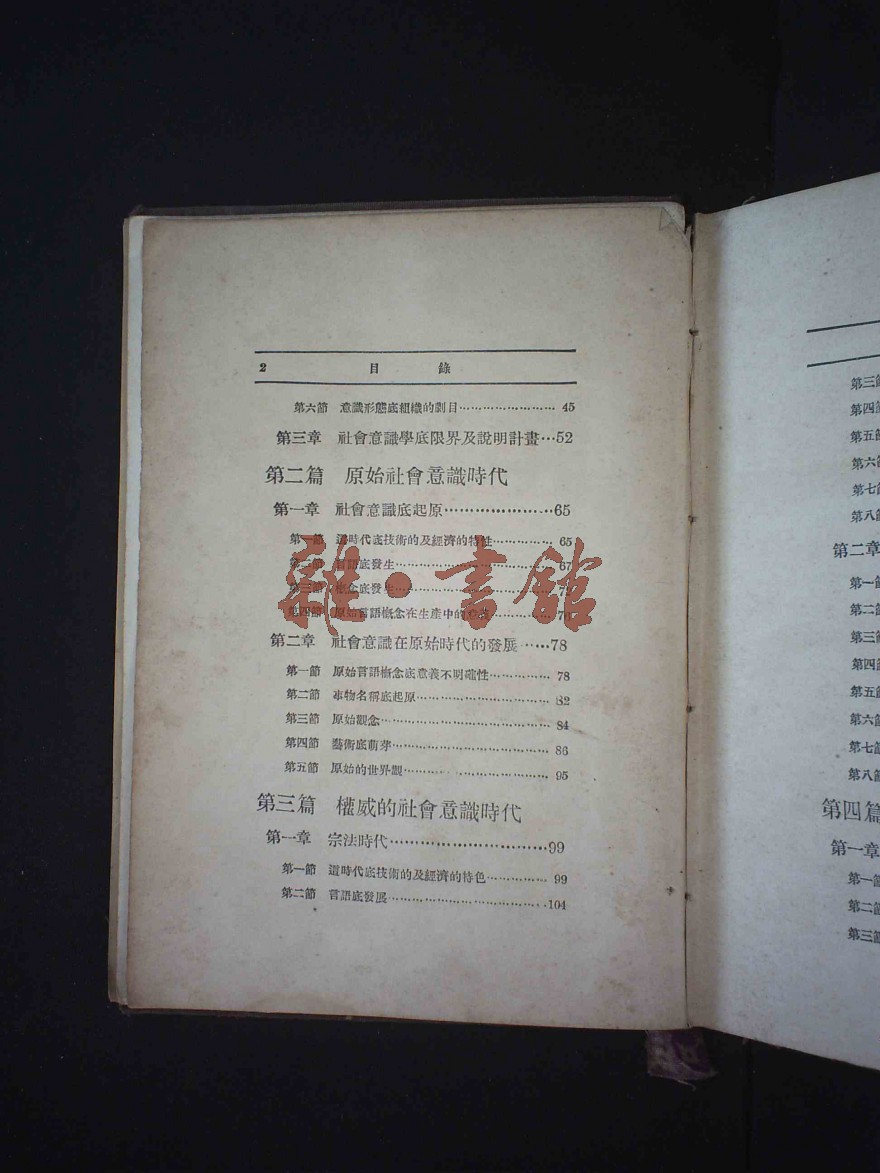 2 目錄
第六節 意識形態底組織的劃目……………………45
第三章 社會意識學底限界及說明計畫…52
第二篇 原始社會意識時代
第一章 社會意識底起原…………………65
第一節 這時代底技術的及經濟的特性……………65
第二節 言語底發生……67
第三節 概念底發生
第四節 原始言語概念在生產中的
雜·書館
第二章 社會意識在原始時代的發展……78
第一節 原始言語概念底意義不明確性……………78
第二節 事物名稱底起原……………………82
第三節 原始觀念……………………84
第四節 藝術底萌芽……………………86
第五節 原始的世界觀……………………95
第三篇 權威的社會意識時代
第一章 宗法時代…………………………99
第一節 這時代底技術的及經濟的特色……………99
第二節 言語底發展……………………104
第三節
第四節
第五節
第六節
第七節
第八節
第二章
第一節
第二節
第三節
第四節
第五節
第六節
第七節
第八節
第四篇
第一章
第一節
第二節
第三節